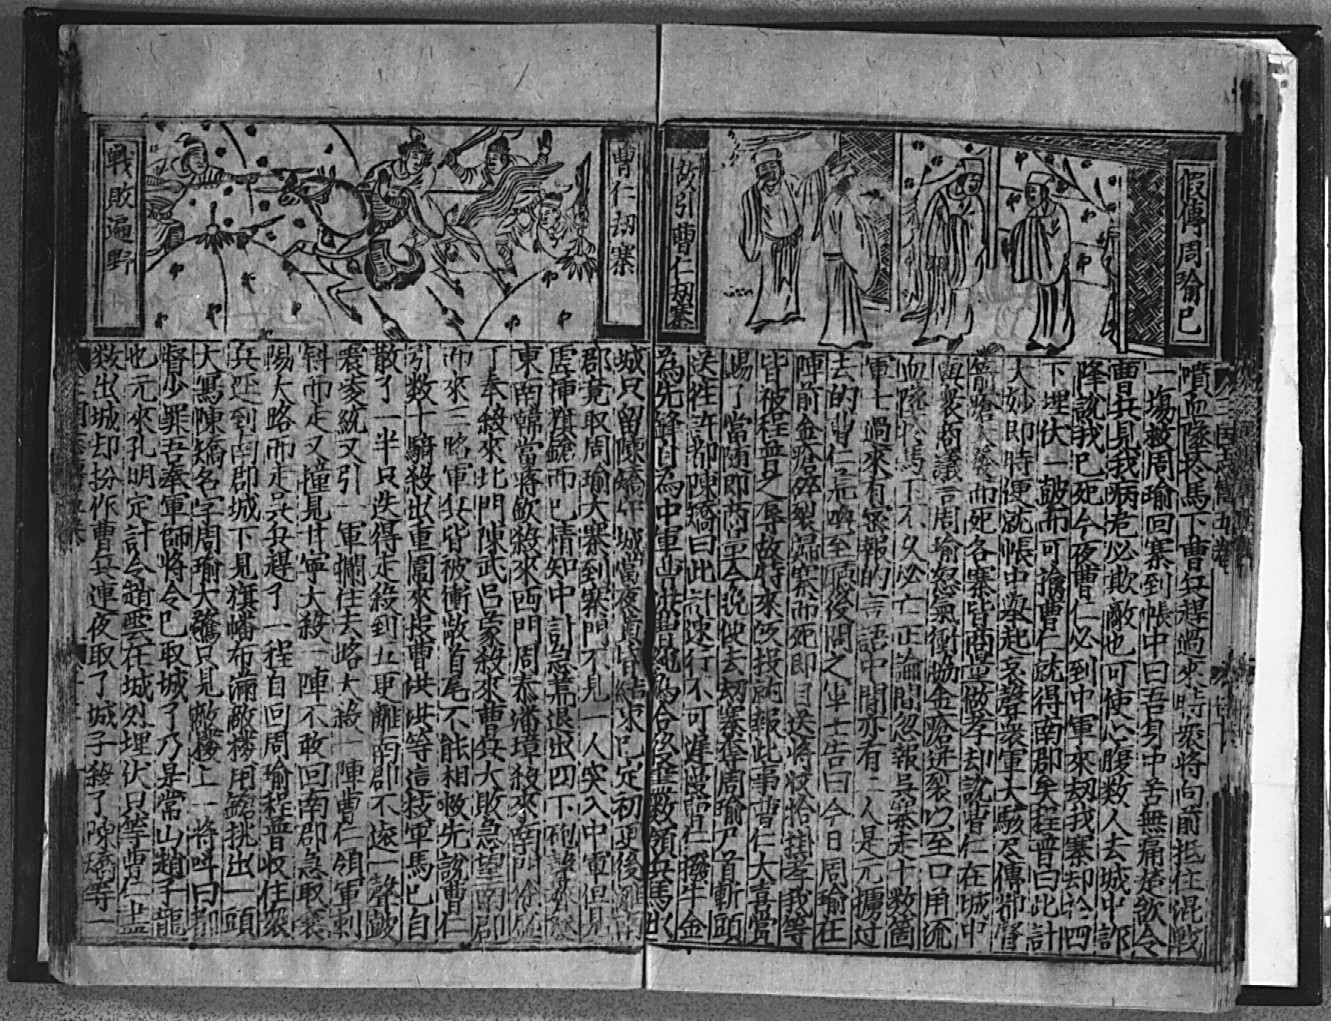 假傳周瑜已
故引曹仁刼寨
噴血墜於馬下曹兵趕過來時衆將向前抵住混戰
一場救周瑜回寨到帳中曰吾身中苦無痛楚欲令
曹兵見我病危必欺敵也可使心腹数人去城中詐
降說我已死今夜曹仁必到中軍來刼我寨却於四
下埋伏一皷而可擒曹仁就得南郡矣程普曰此計
大妙即時便就帳中舉起哀聲衆軍大駭尽傳都督
箭瘡大發而死各寨皆商量做孝却說曹仁在城中
與衆商議言周瑜怒氣衝協金瘡迸裂以至口用流
血墜於馬下不久必亡正論間忽報吳寨走十数箇
軍士過來有密報的言語中間亦有二人是元擄过
去的曹仁荒喚至廳後問之軍士告曰今日周瑜在
陣前金瘡碎裂歸寨而死即目送將校恰挂孝我等
皆被程普之辱故特來仅投報此事曹仁大喜當
賜了當随即商量今晚便去刼寨奪周瑜尸首斬頭
送往許都陳矯曰此計速行不可遲慢曹仁撥牛金
為先鋒自為中軍曹洪曹純為合後盡数領兵馬
城只留陳矯守城當夜
郡竟取周瑜大寨到寨門不見一人突入中軍但見
虛揷旗鎗而已情知中計急荒退出四下砲聲
東南韓當蔣欽殺來西門周泰潘璋殺來南門徐盛
丁奉殺來北門陳武呂蒙殺來曹兵大敗急望南郡
而來三路軍兵皆被衝散首尾不能相救先說曹仁
引数十騎殺出重圍來投曹洪洪等這技軍馬已自
散了一半只迭得走殺到五更離南郡不遠一聲皷
震凌統又引一軍攔住去路大殺一陣曹仁領軍刺
斜而走又撞見甘寧大殺一陣不敢回南郡急取襄
陽大路而走吳兵趕了一程自回周瑜程普收住衆
兵迳到南郡城下見旗幡布滿敵樓用鎗挑出一頭
大罵陳矯名字周瑜大驚只見敵樓上一將叫曰都
督少罪吾奉軍師將令已取城了乃是常山趙子龍
也元來孔明定計令趙雲在城外埋伏只等曹仁盡
数出城却扮作曹兵連夜取了城子殺了陳矯等一
曹仁刼寨
戰敗遍野